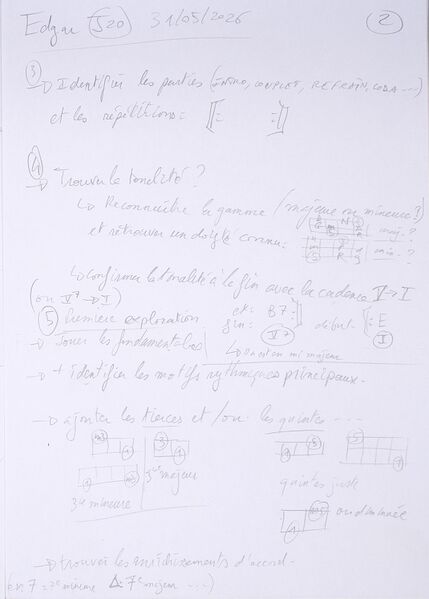 Edgar (J20) 31/05/2026 2
3 → Identifier les parties (INTRO, COUPLET, REFRAIN, CODA ...)
et les répétitions: [: :]
4 → Trouver la tonalité ?
↳ Reconnaître la gamme (majeure ou mineure ?)
et retrouver un doigté connu: maj. ?
min. ?
↳ Confirmer la tonalité à la fin avec la cadence V→I
(ou V7 → I)
5 Première exploration et: B7 :] début [: E
fin: V7 I
→ Jouer les fondamentales ↳ on est en mi majeur
→ + identifier les motifs rythmiques principaux.
→ ajouter les tierces et/ou les quintes ...
3ce majeur
3ce mineure
quintes juste
ou diminuée
→ trouver les enrichissements d'accord.
7 = 7e mineure Δ: 7e majeur ...)